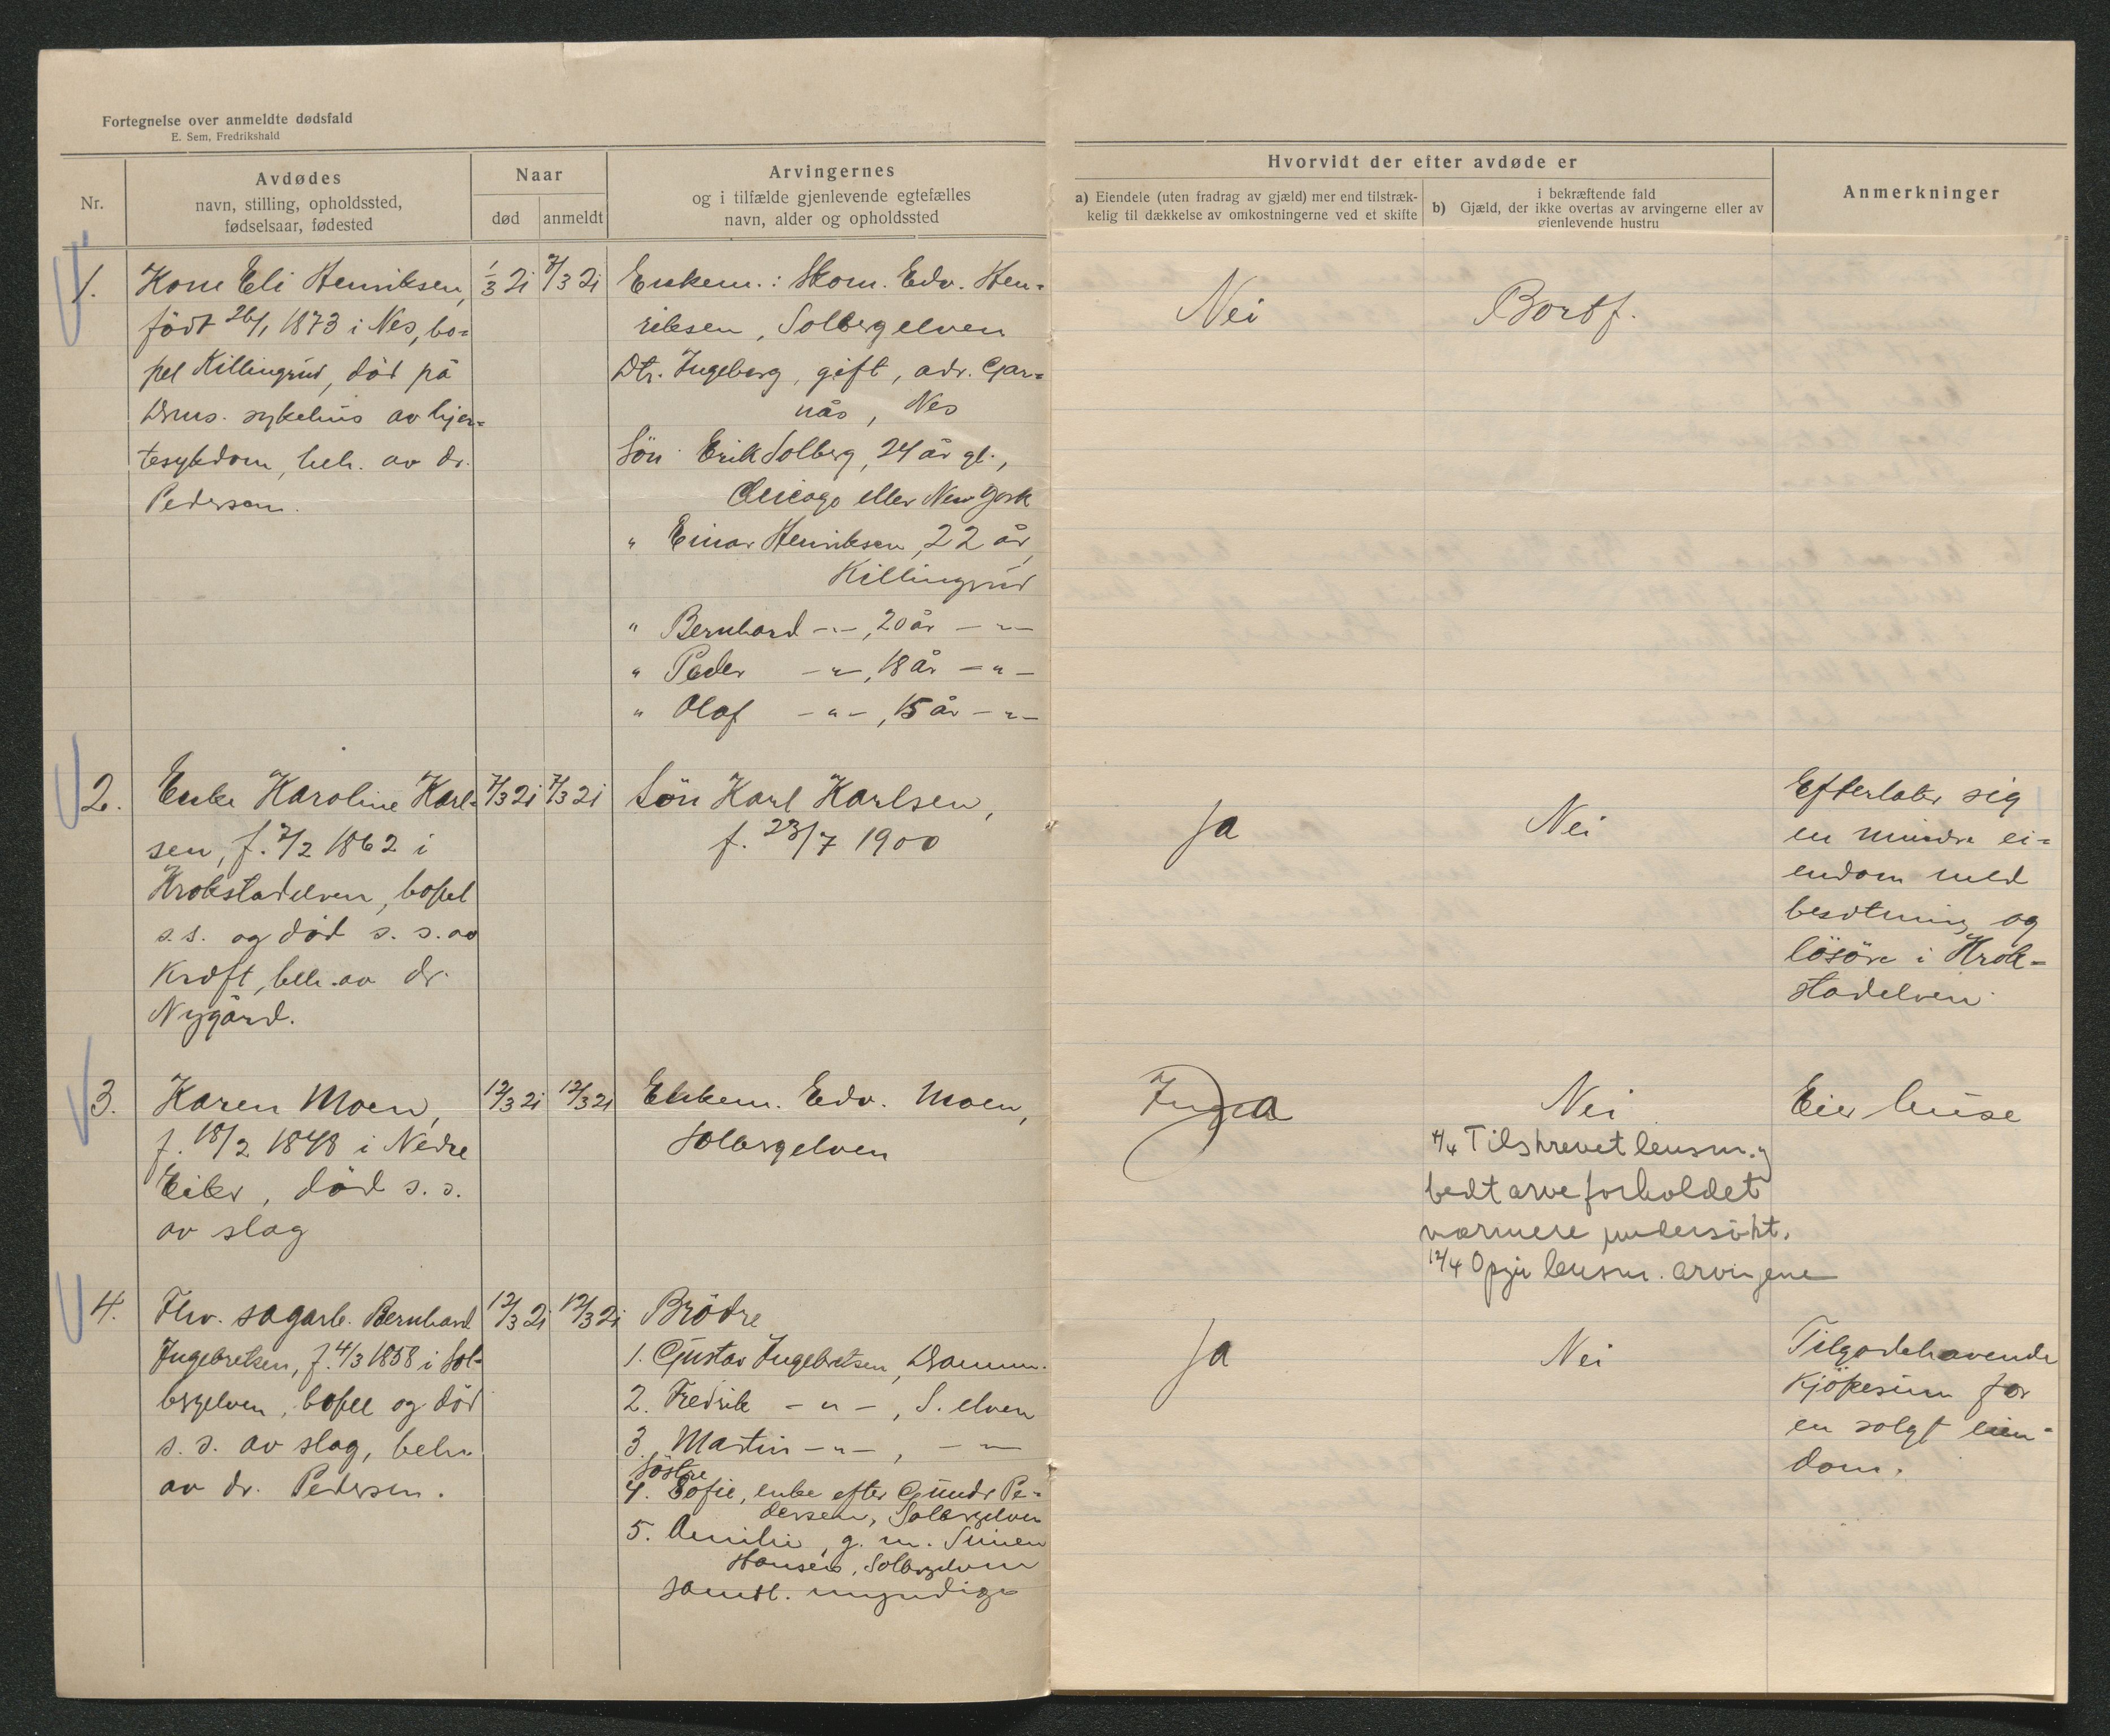 Fortegnelse over anmeldte dødsfald
E. Sem, Fredrikshald
Nr.
Avdødes
navn, stilling, opholdssted,
fødselsaar, fødested
Naar
død
anmeldt
Arvingernes
og i tilfælde gjenlevende egtefælles
navn, alder og opholdssted
Hvorvidt der efter avdøde er
a) Eiendele (uten fradrag av gjæld) mer end tilstræk-
kelig til dækkelse av omkostningerne ved et skifte
i bekræftende fald
b) Gjæld, der ikke overtas av arvingerne eller av
gjenlevende hustru
Anmerkninger
1.
Kone Eli Henriksen,
født 26/1 1873 i Nes, bo-
pel Killingrud, död på
Drms. sykehus av hjer-
tesykdom, beh. av dr.
Pedersen.
1/3 21
7/3 21
Enkem.: Skom. Edv. Hen-
riksen, Solbergelven
Dtr. Ingeborg, gift, adr. Gar-
nås, Nes
Sön Erik Solberg, 24 år gl.,
Chicago eller New York
" Einar Henriksen, 22 år,
Killingrud
" Bernhard -"-, 20 år -"-
" Peder -"-, 18 år -"-
" Olaf -"-, 15 år -"-
Nei
Bortf.
2.
Enke Karoline Karl-
sen, f. 7/2 1862 i
Krokstadelven, bopel
s.s. og död s.s. av
kræft, beh. av dr.
Nygård.
7/3 21
7/3 21
Sön Karl Karlsen,
f. 23/7 1900
Ja
Nei
Efterlater sig
en mindre ei-
endom med
besetning og
lösöre i Krok-
stadelven
3.
Karen Moen,
f. 18/2 1848 i Nedre
Eiker, död s.s.
av slag
12/3 21
12/3 21
Enkem. Edv. Moen,
Solbergelven
Ja
Nei
4/4 Tilskrevet lensm. og
bedt arveforholdet
nærmere undersökt.
12/4 Opgir lensm. arvingene
Eier huse
4.
Fhv. sagarb. Bernhard
Ingebretsen, f. 4/3 1858 i Sol-
bergelven, bopel og död
s.s. av slag, beh.
av dr. Pedersen.
12/3 21
12/3 21
Brödre
1. Gustav Ingebretsen, Dramm.
2. Fredrik -"-, S.elven
3. Martin -"-, -"-
Söstre
4. Sofie, enke efter Gunder Pe-
dersen, Solbergelven
5. Amilie, g. m. Simen
Hansen, Solbergelven
samtl. myndige
Ja
Nei
Tilgodehavende
kjöpesum for
en solgt eien-
dom.